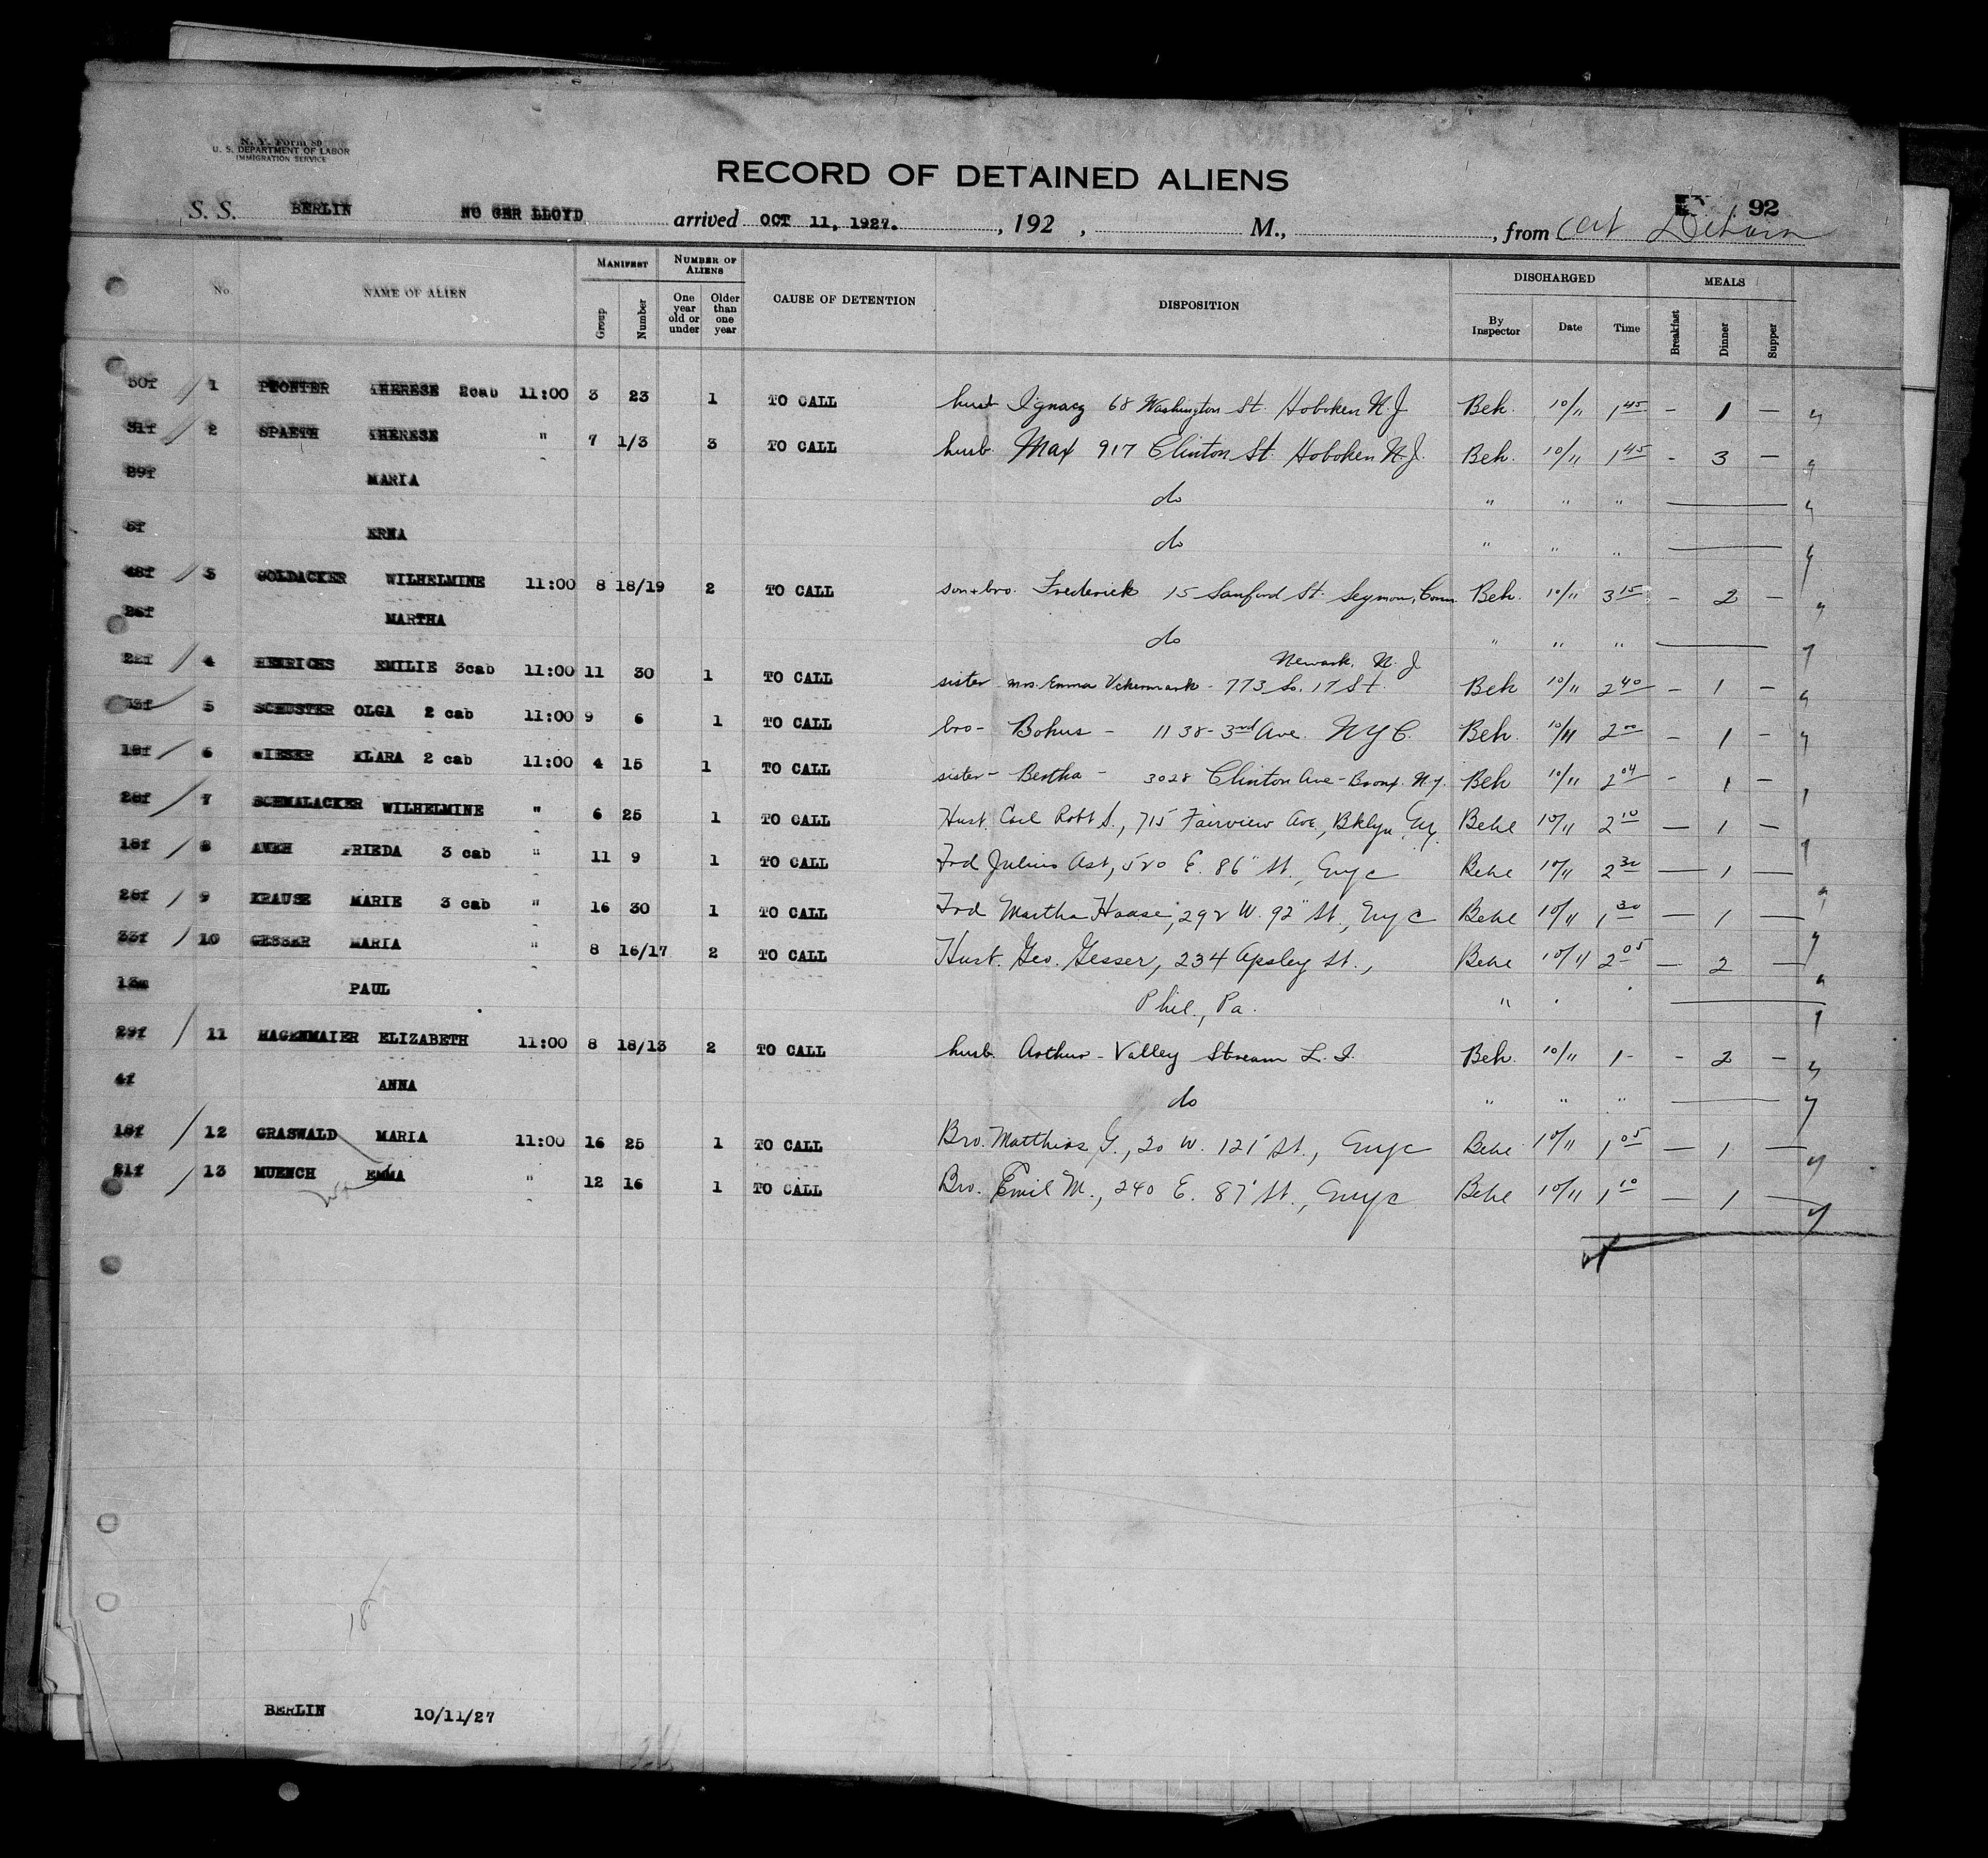 N. Y. Form 89
U. S. DEPARTMENT OF LABOR
IMMIGRATION SERVICE
RECORD OF DETAINED ALIENS
92
S. S. BERLIN NO GER LLOYD arrived OCT 11, 1927. , 192 , M., , from
No. NAME OF ALIEN MANIFEST Group Number NUMBER OF ALIENS One year old or under Older than one year CAUSE OF DETENTION DISPOSITION DISCHARGED By Inspector Date Time MEALS Breakfast Dinner Supper
30f 1 THERESE 2cab 11:00 3 23 1 TO CALL husb Ignacz 68 Washington St. Hoboken N.J. Beh. 10/11 1 45 - 1 -
31f 2 SPAETH THERESE " 7 1/3 3 TO CALL husb. Max 917 Clinton St. Hoboken N.J. Beh. 10/11 1 45 - 3 -
29f MARIA do " " "
5f ERNA do " " "
48f 3 GOLDACKER WILHELMINE 11:00 8 18/19 2 TO CALL son + bro. Frederick 15 Sanford St. Seymour, Conn. Beh. 10/11 3 15 - 2 -
26f MARTHA do " " "
22f 4 HENRICHS EMILIE 3cab 11:00 11 30 1 TO CALL sister Mrs. Emma 773 So. 17 St. Newark, N. J. Beh 10/11 2 40 - 1 -
5 SCHUSTER OLGA 2 cab 11:00 9 6 1 TO CALL bro- Bohus - 1138- 3rd Ave. NYC. Beh. 10/11 2 00 - 1 -
18f 6 WIESER KLARA 2 cab 11:00 4 15 1 TO CALL sister- Bertha - 3028 Clinton Ave - Bronx. N.Y. Beh 10/11 2 04 - 1 -
28f 7 SCHMALACKER WILHELMINE " 6 25 1 TO CALL Husb. Carl Robt S., 715 Fairview Ave, Bklyn, NY. Behe 10/11 2 10 - 1 -
18f 8 AWEH FRIEDA 3 cab " 11 9 1 TO CALL Frd Julius Ast, 520 E. 86" St., NYC Behe 10/11 2 30 - 1 -
28f 9 KRAUSE MARIE 3 cab " 16 30 1 TO CALL Frd Martha Haase, 292 W. 92" St., NYC Behe 10/11 1 30 - 1 -
33f 10 GESSER MARIA " 8 16/17 2 TO CALL Husb. Geo. Gesser, 234 Apsley St., Behe 10/11 2 05 - 2 -
13m PAUL Phil., Pa. "
29f 11 HAGENMAIER ELIZABETH 11:00 8 18/13 2 TO CALL husb. Arthur - Valley Stream L. I. Beh. 10/11 1- - 2 -
4f ANNA do " " "
18f 12 GRASWALD MARIA 11:00 16 25 1 TO CALL Bro. Matthias G., 20 W. 121" St., NYC Behe 10/11 1 05 - 1 -
21f 13 MUENCH EMMA " 12 16 1 TO CALL Bro. Emil M., 240 E. 87" St., NYC Behe 10/11 1 10 - 1 -
18
BERLIN 10/11/27